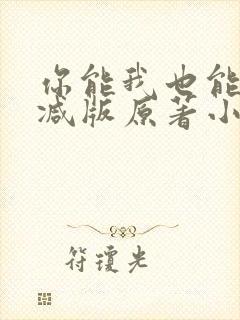 你能我也能
减版原著小
符琼光